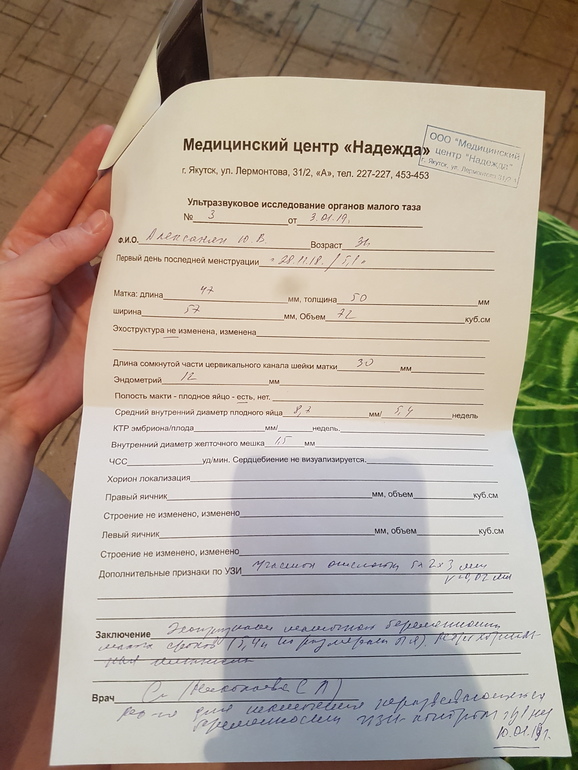 Медицинский центр «Надежда»
ООО "Медицинский
центр "Надежда"
г. Якутск, ул. Лермонтова 31/2
г. Якутск, ул. Лермонтова, 31/2, «А», тел. 227-227, 453-453
Ультразвуковое исследование органов малого таза
№ 3 от 3.01.19.
Ф.И.О. Ю В Возраст 31
Первый день последней менструации 28.11.18. / 5,1
Матка: длина 47 мм, толщина 50 мм
ширина 57 мм, Объем 72 куб.см
Эхоструктура не изменена, изменена
Длина сомкнутой части цервикального канала шейки матки 30 мм
Эндометрий 12 мм
Полость макти - плодное яйцо - есть, нет.
Средний внутренний диаметр плодного яйца мм/ 5,4 недель
КТР эмбриона/плода мм/ недель.
Внутренний диаметр желточного мешка мм
ЧСС уд/мин. Сердцебиение не визуализируется.
Хорион локализация
Правый яичник мм, объем куб.см
Строение не изменено, изменено
Левый яичник мм, объем куб.см
Строение не изменено, изменено
Дополнительные признаки по УЗИ участок отслойки 5х2х3 мм
V=0,02 мл
Заключение Эхопризнаки маточной беременности
малого срока (5,4 н по размерам п.я).
Врач (Николаева С Л)
для исключения неразвивающейся
беременности УЗИ-контроль
10.01.19г.